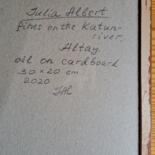 Julia Albert
Pines on the Katun-
river.
Altay.
oil on cardboard
30 × 20 cm
2020